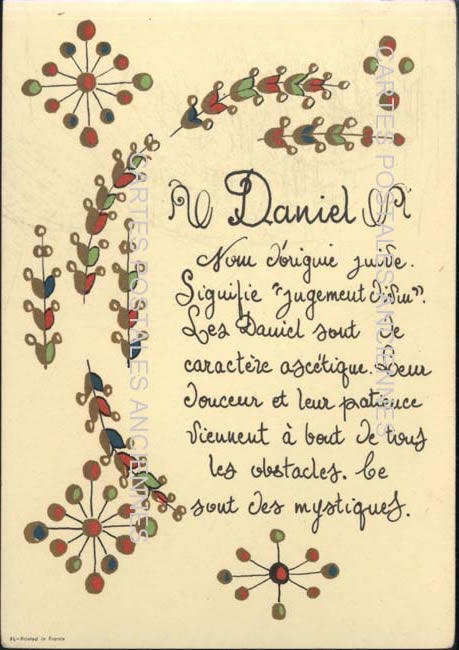 Daniel
Nom d'origine juive.
Signifie "jugement divin".
Les Daniel sont de
caractère ascétique. Leur
douceur et leur patience
viennent à bout de tous
les obstacles. Ce
sont des mystiques.
CARTES POSTALES ANCIENNES
CARTES POSTALES ANCIENNES
Printed in France